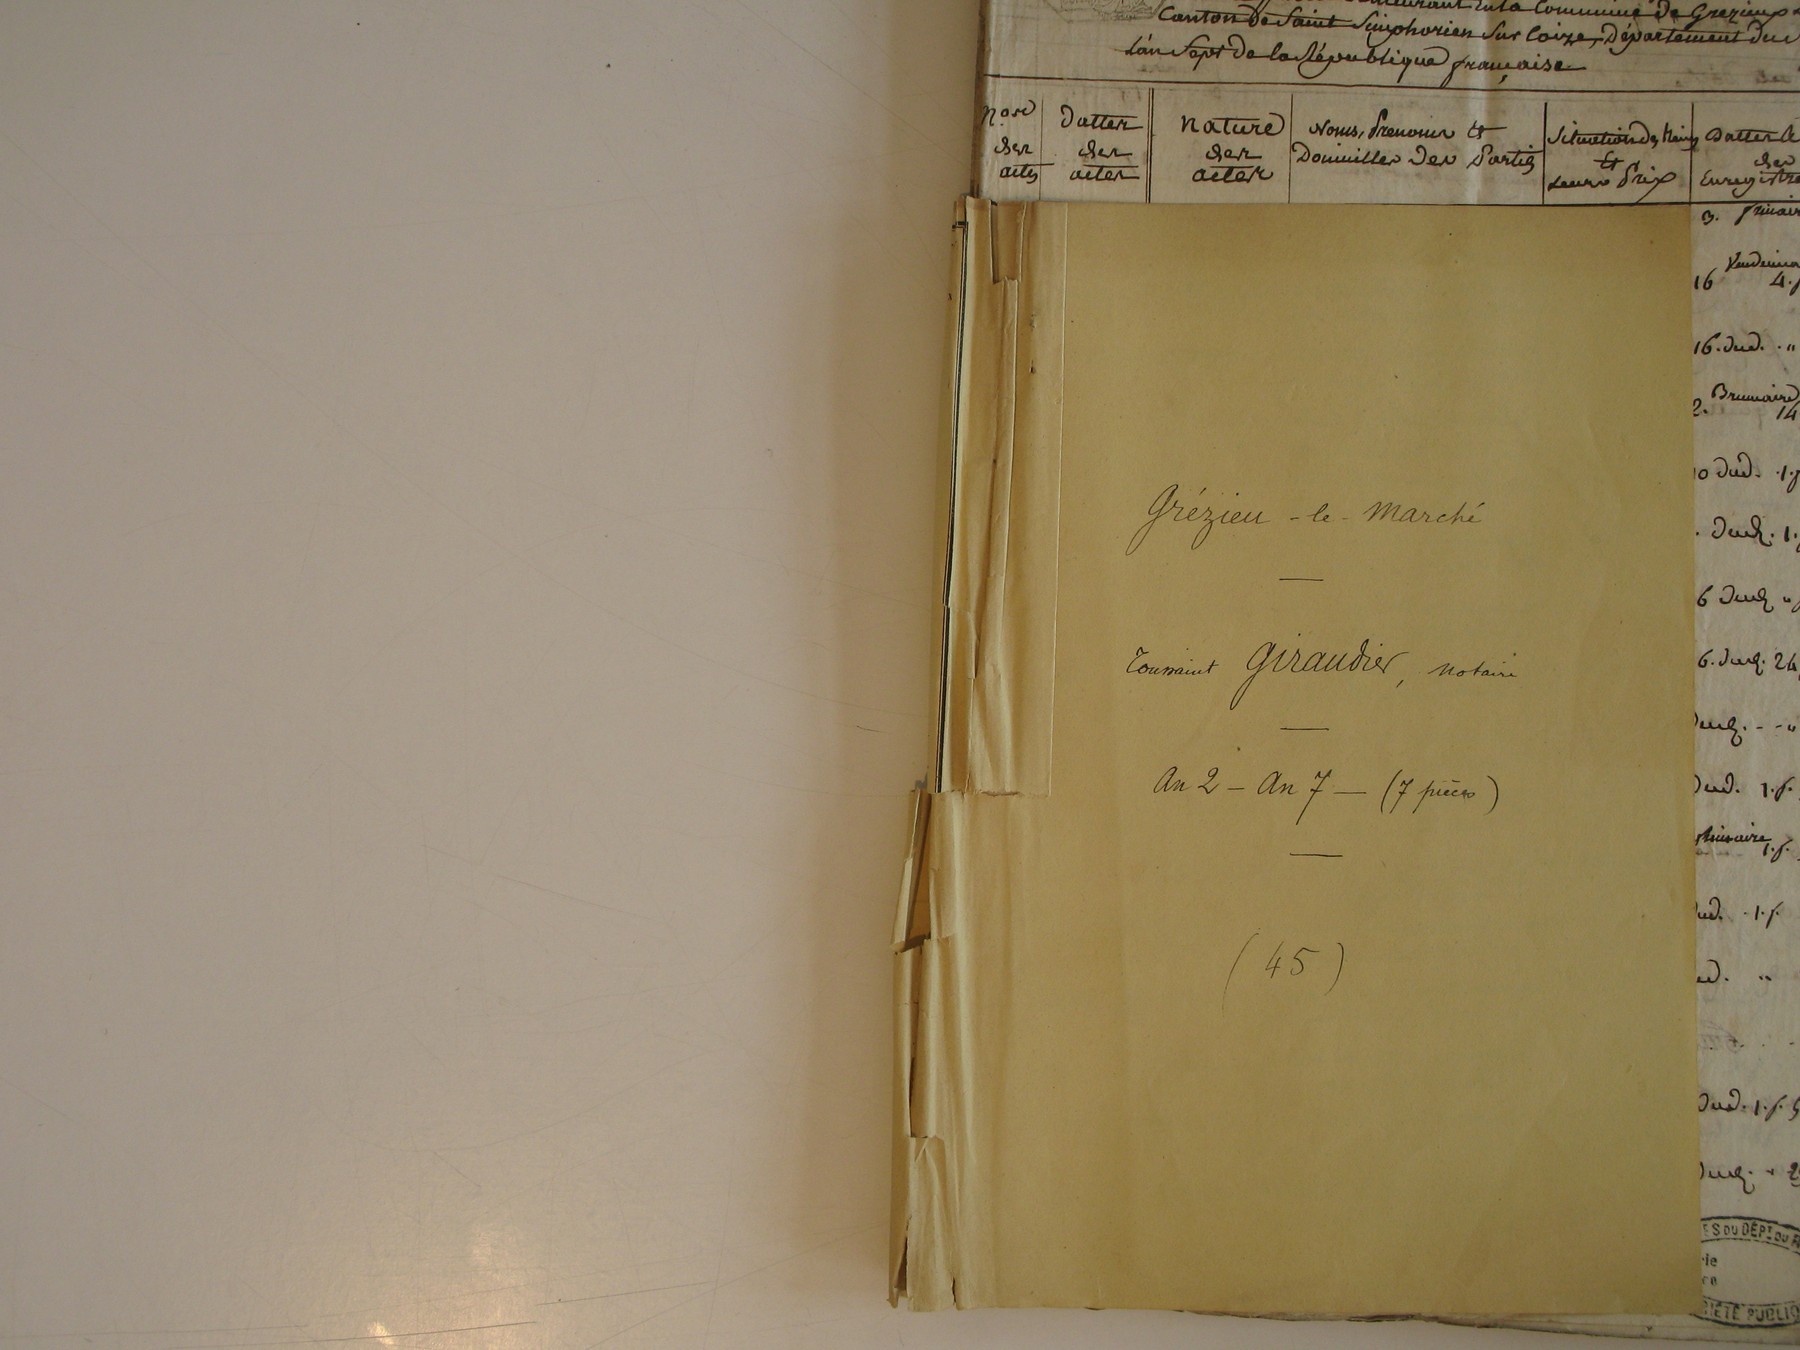 demeurant en la Commune de Grezieux
Canton de Saint Simphorien Sur Coize, Département du
L'an Sept de la République française
Nos des actes
Dattes des actes
Nature des actes
Noms, Prenoms et Domicilles des Parties
Situation des biens et Leurs Prix
Dattes de
des
Enregistre
3. frimair
Vendemia
16 4.f
16. dud. . "
Brumaire
2. 14
10 dud. .1.f
. Dud. 1.
6 Dud. "
6. Dud. 24
Dud. - - "
Dud. 1.f.
frimaire
1.f.
dud. .1.f.
ud. "
Dud. 1.f. 5
Dud. "
Grézieu-le-Marché
Toussaint Giraudier, notaire
An 2 – An 7 — (7 pièces)
(45)
ES DU DÉPT DU R
rie
re
RIÉTÉ PUBLIQ